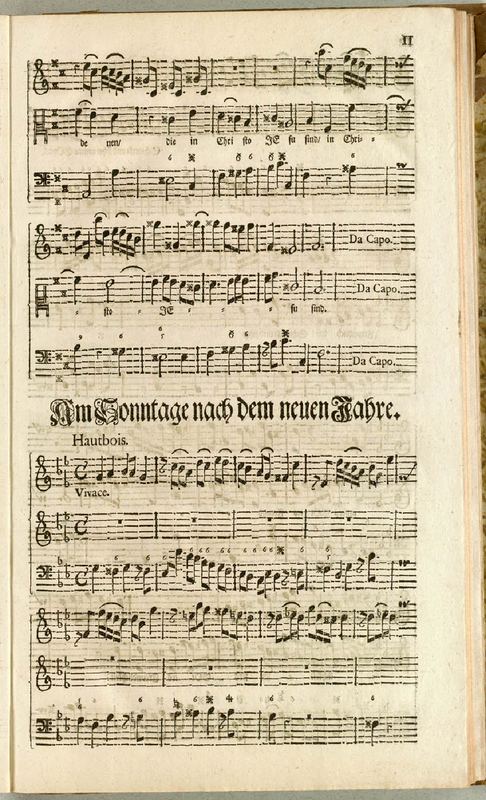 11
de nen/ die in Chri sto JE su sind/ in Chri-
6 6 6 6
Da Capo.
Da Capo.
sto JE su sind.
9 6 6 5 6 6
Da Capo.
Am Sonntage nach dem neuen Jahre.
Hautbois.
Vivace.